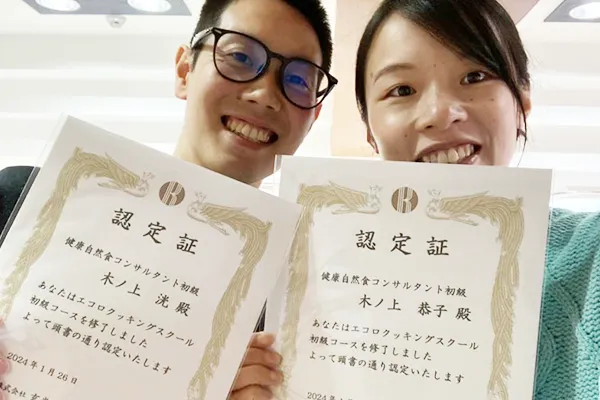 認定証
健康自然食コンサルタント初級
木ノ上 洸 殿
あなたはエコロクッキングスクール
初級コースを修了しました
よって頭書の通り認定いたします
2024年1月26日
株式会社
認定証
健康自然食コンサルタント初級
木ノ上 恭子 殿
あなたはエコロクッキングスクール
初級コースを修了しました
よって頭書の通り認定いたします
2024年1